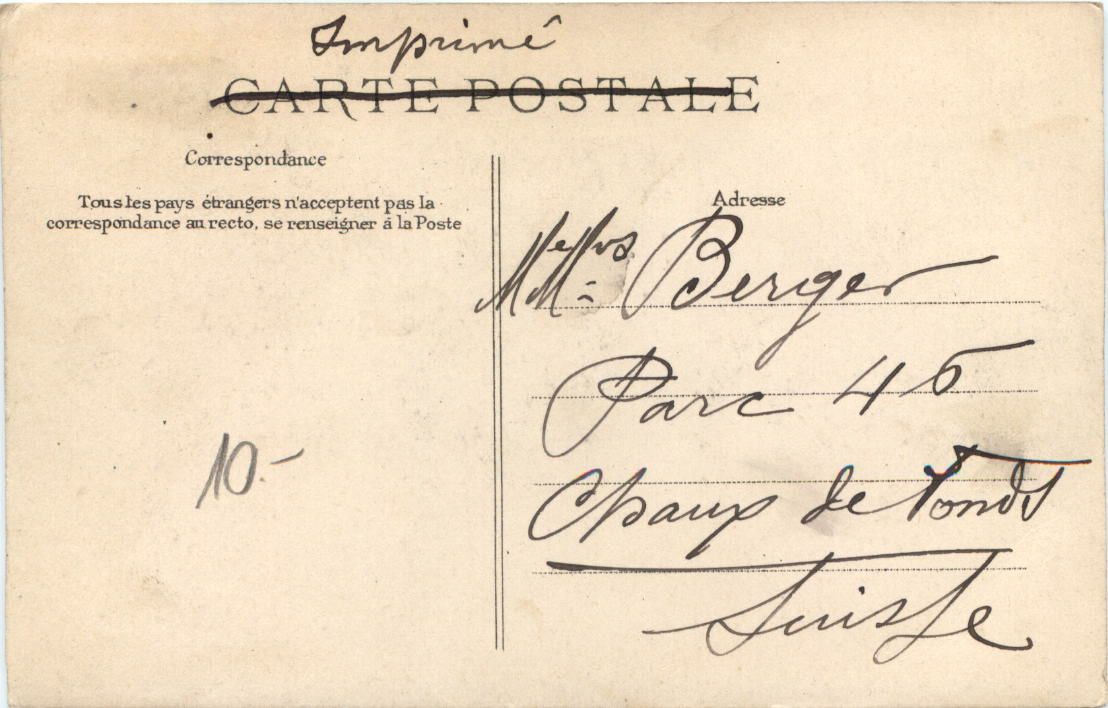 Imprimé
CARTE POSTALE
Correspondance
Tous les pays étrangers n'acceptent pas la
correspondance au recto, se renseigner à la Poste
Adresse
Berger
Parc 46
Chaux de Fonds
Suisse
10.-